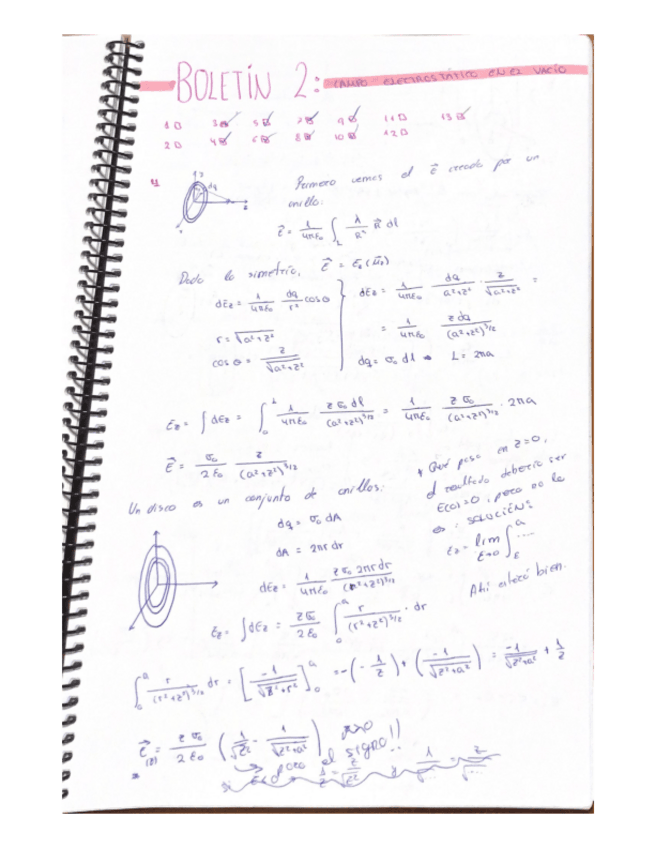 BOLETÍN 2: CAMPO ELECTROSTÁTICO EN EL VACÍO
1 3 5 7 9 11 13
2 4 6 8 10 12
Primero vemos el E⃗ creado por un
anillo:
E⃗ = 1/4πε₀ ∫_L λ/R² R̂ dl
Dada la simetría, E⃗ = E_z(u⃗_z)
dE_z = 1/4πε₀ dq/r² cosθ
r = √(a²+z²)
cos θ = z/√(a²+z²)
dE_z = 1/4πε₀ dq/(a²+z²) · z/√(a²+z²) =
= 1/4πε₀ z dq/(a²+z²)^3/2
dq = σ₀ dl → L = 2πa
E_z = ∫dE_z = ∫₀^L 1/4πε₀ · z σ₀ dl/(a²+z²)^3/2 = 1/4πε₀ z σ₀/(a²+z²)^3/2 · 2πa
E⃗ = σ₀/2ε₀ z/(a²+z²)^3/2
Un disco es un conjunto de anillos:
dq = σ₀ dA
dA = 2πr dr
dE_z = 1/4πε₀ z σ₀ 2πr dr/(r²+z²)^3/2
E_z = ∫dE_z = z σ₀/2ε₀ ∫₀^a r/(r²+z²)^3/2 · dr
Qué pasa en z=0,
el resultado debería ser
E(0)=0, pero no lo
es: SOLUCIÓN:
E_z = lim ε→0 ∫_ε^a ....
Ahí estará bien.
∫₀^a r/(r²+z²)^3/2 dr = [-1/√(z²+r²)]₀^a = -(-1/z) + (-1/√(z²+a²)) = -1/√(z²+a²) + 1/z
E⃗(z) = z σ₀/2ε₀ (1/√z² - 1/√(z²+a²))
el signo!!